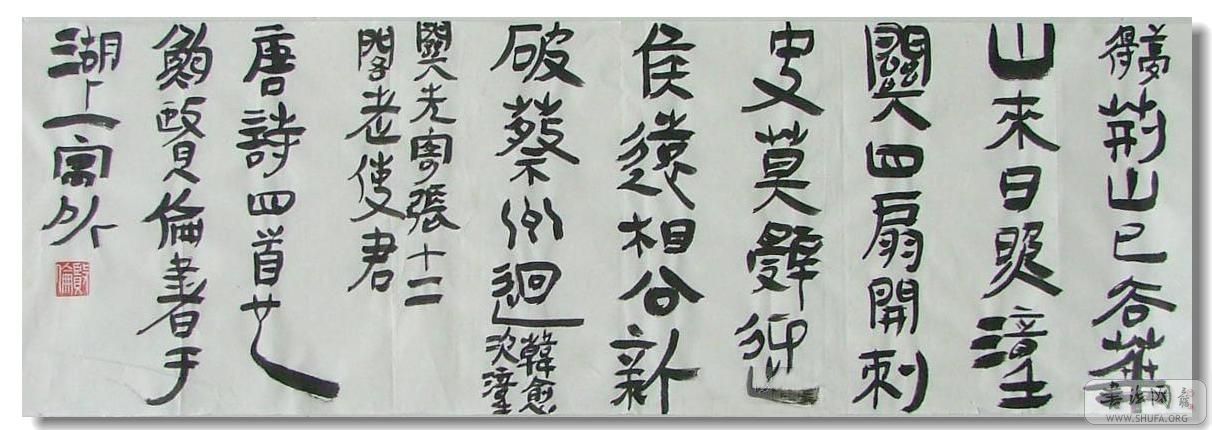 夢得荊山已去華
山來日照潼
關四扇開刺
史莫辭迎
侯遠相公新
破蔡州迴韓愈次潼
關先寄張十二
閣老使君
唐詩四首
倫書于
湖上寓
書法网
WWW.SHUFA.ORG